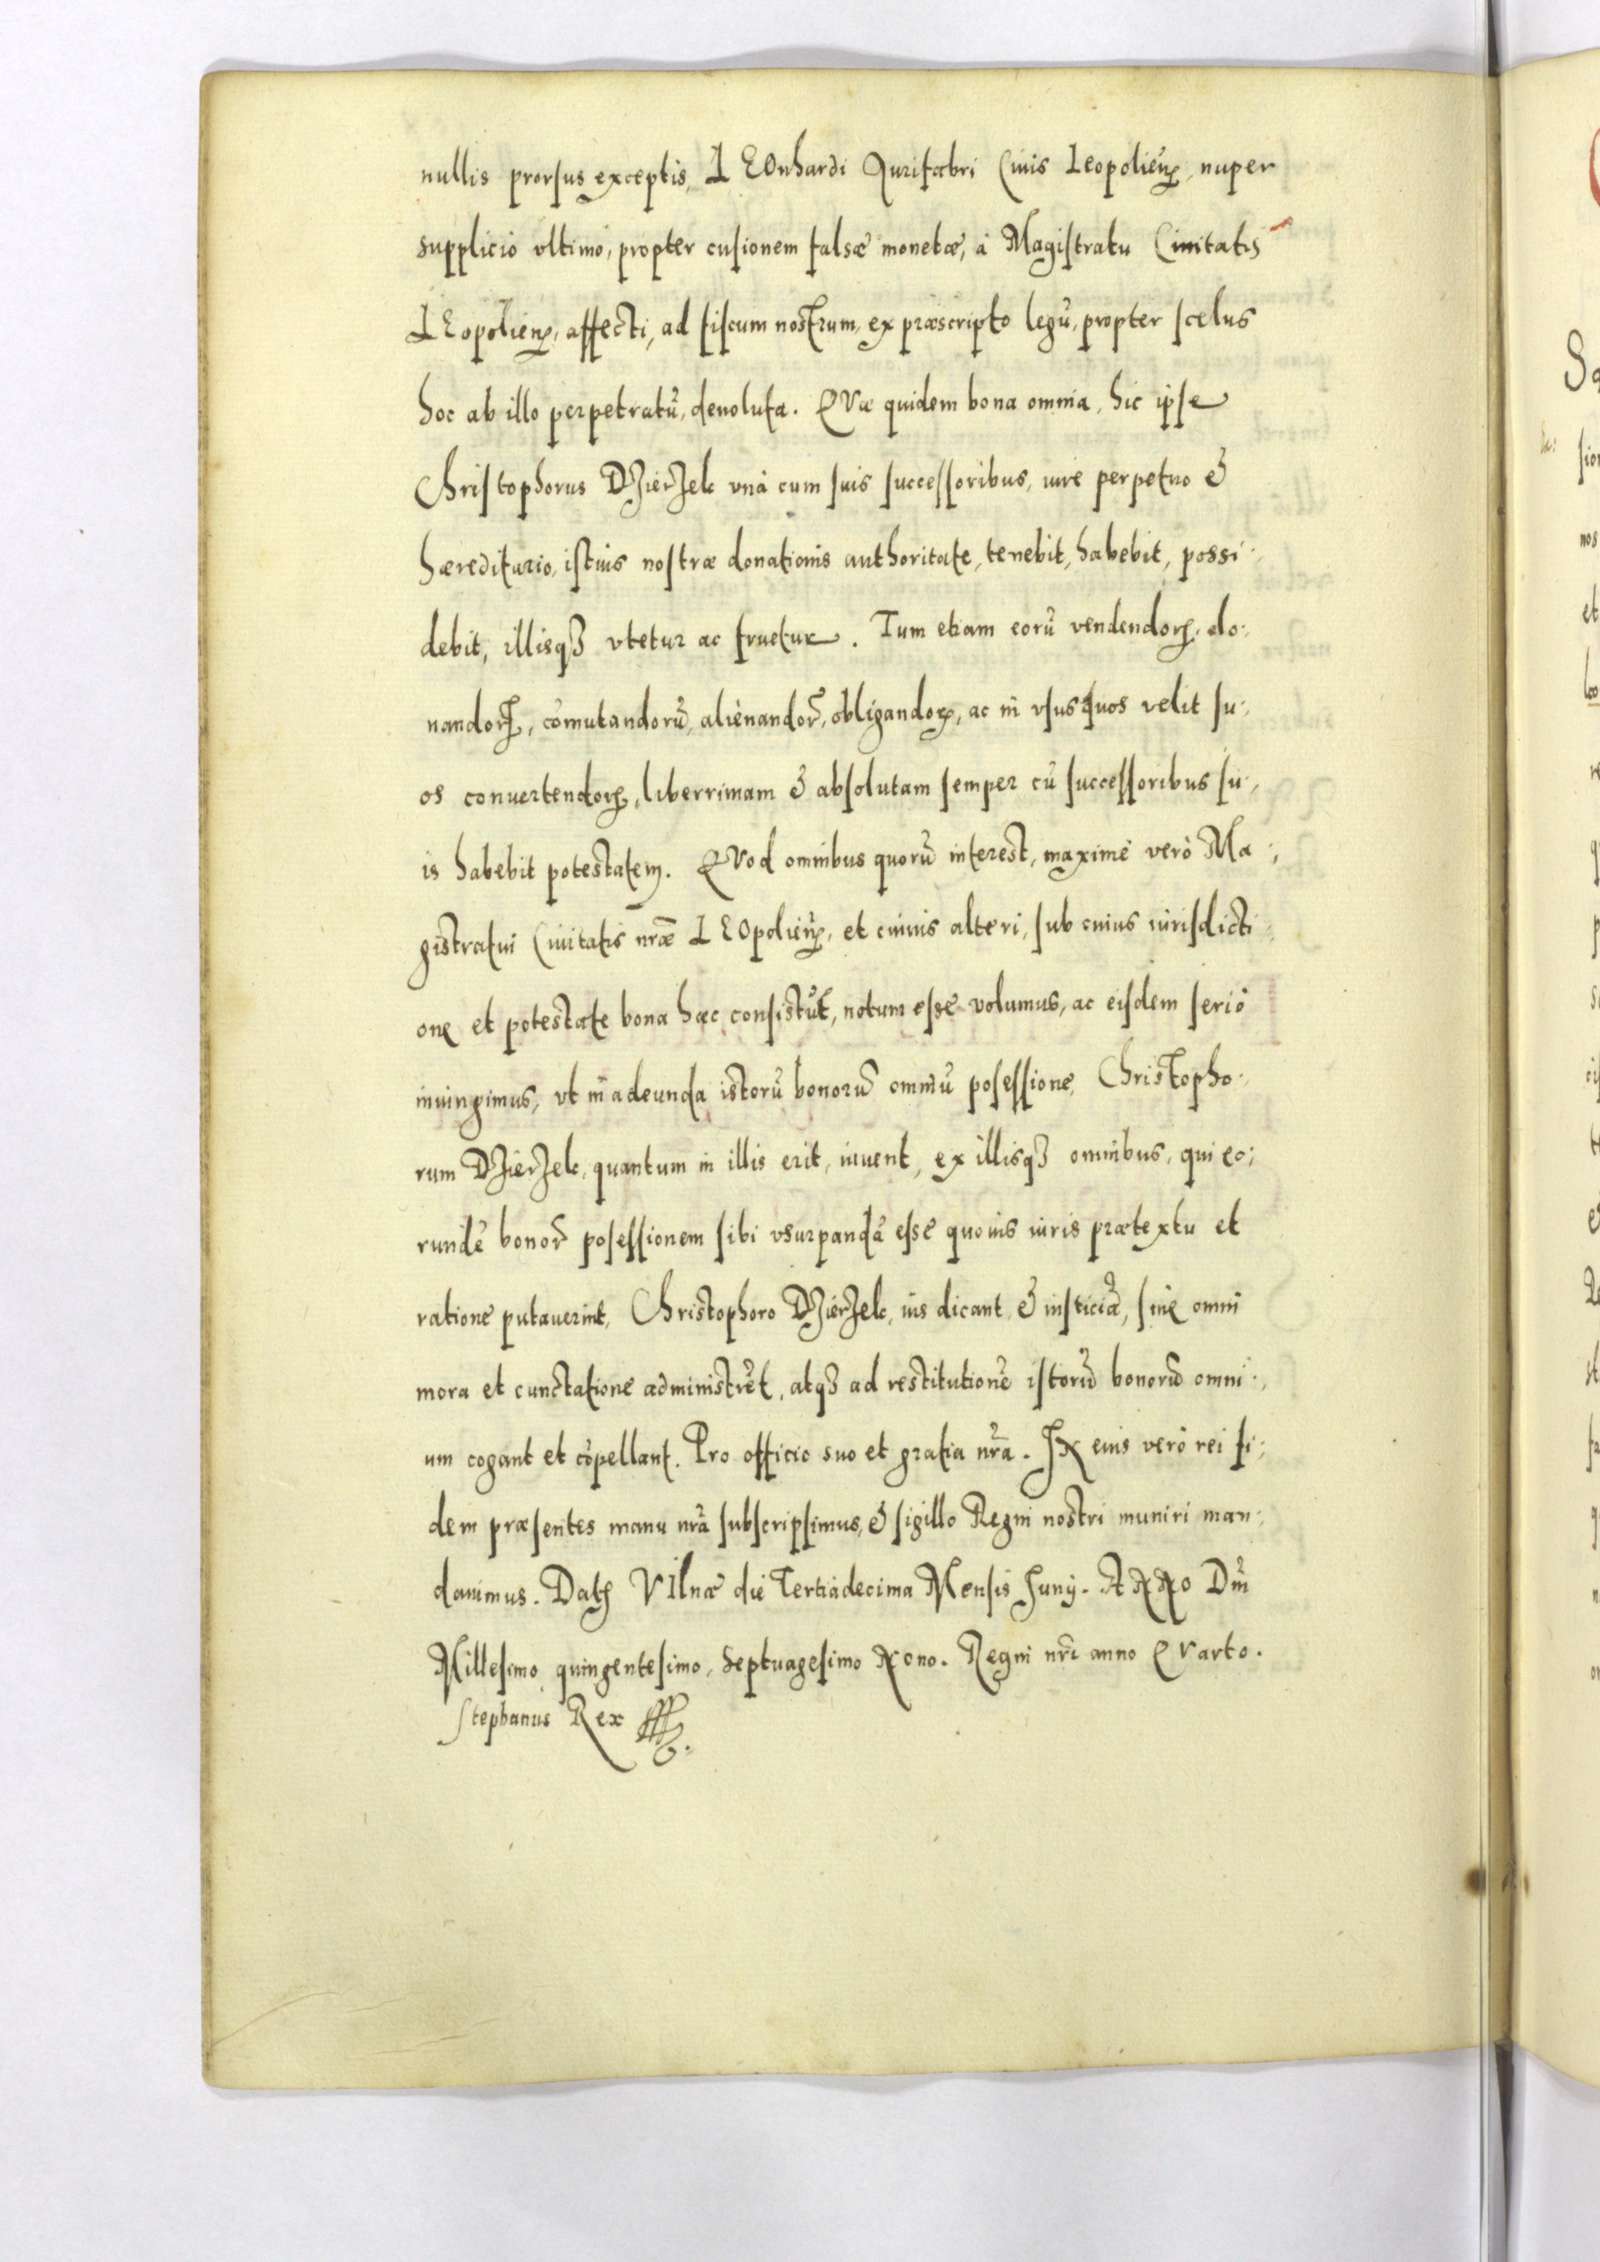 nullis prorsus exceptis, LEOnhardi Aurifabri Ciuis Leopolien̄, nuper
supplicio vltimo, propter cusionem falsæ monetæ, à Magistratu Ciuitatis
LEopolien̄, affecti, ad fiscum nostrum, ex præscripto legū, propter scelus
hoc ab illo perpetratū, deuoluta. QVæ quidem bona omnia, hic ipse
Christophorus Dzierzek vnà cum suis successoribus, iure perpetuo &
hæreditario, istius nostræ donationis authoritate, tenebit, habebit, possi:
debit, illisqꝫ vtetur ac fruetur. Tum etiam eorū vendendoꝝ, do:
nandoꝝ, cōmutandorū, alienandoꝝ, obligandoꝝ, ac in vsus quos velit su:
os conuertendoꝝ, liberrimam & absolutam semper cū successoribus su:
is habebit potestatem. QVod omnibus quorū interest, maximè verò Ma:
gistratui Ciuitatis nr̄æ LEOpolien̄, et cuiuis alteri, sub cuius iurisdicti:
one et potestate bona hæc consistūt, notum esse volumus, ac eisdem seriò
iniungimus, vt in adeunda istorū bonorū omniū possessione, Christopho:
rum Dzierzek, quantum in illis erit, iuuent, ex illisqꝫ omnibus, qui eo:
rundē bonoꝝ possessionem sibi vsurpandā esse quouis iuris prætextu et
ratione putauerint, Christophoro Dzierzek, ius dicant & iusticiā, sine omni
mora et cunctatione administrēt, atqꝫ ad restitutionē istorū bonorū omni:
um cogant et cōpellant. Pro officio suo et gratia nr̄a. IN euis verò rei fi:
dem præsentes manu nr̄a subscripsimus, & sigillo Regni nostri muniri man:
dauimus. Datꝫ VIlnæ die Tertiadecima Mensis Iunij. ANNo Dn̄i
Millesimo quingentesimo, septuagesimo Nono. Regni nr̄i anno QVarto.
Stephanus Rex